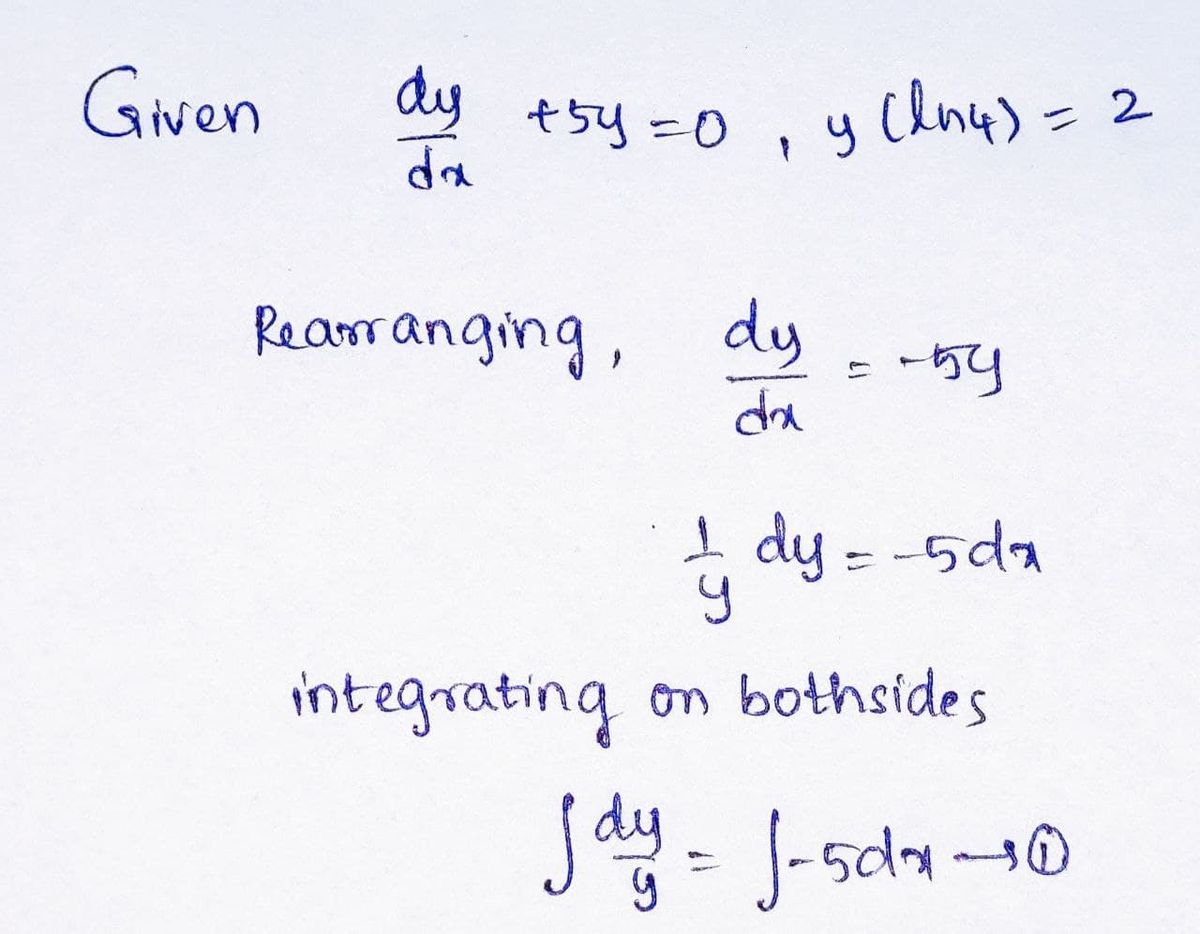 Given dy/dx +5y=0 , y (ln4) = 2
Rearranging, dy/dx = -5y
1/y dy = -5dx
integrating on bothsides
∫ dy/y = ∫-5dx → ①